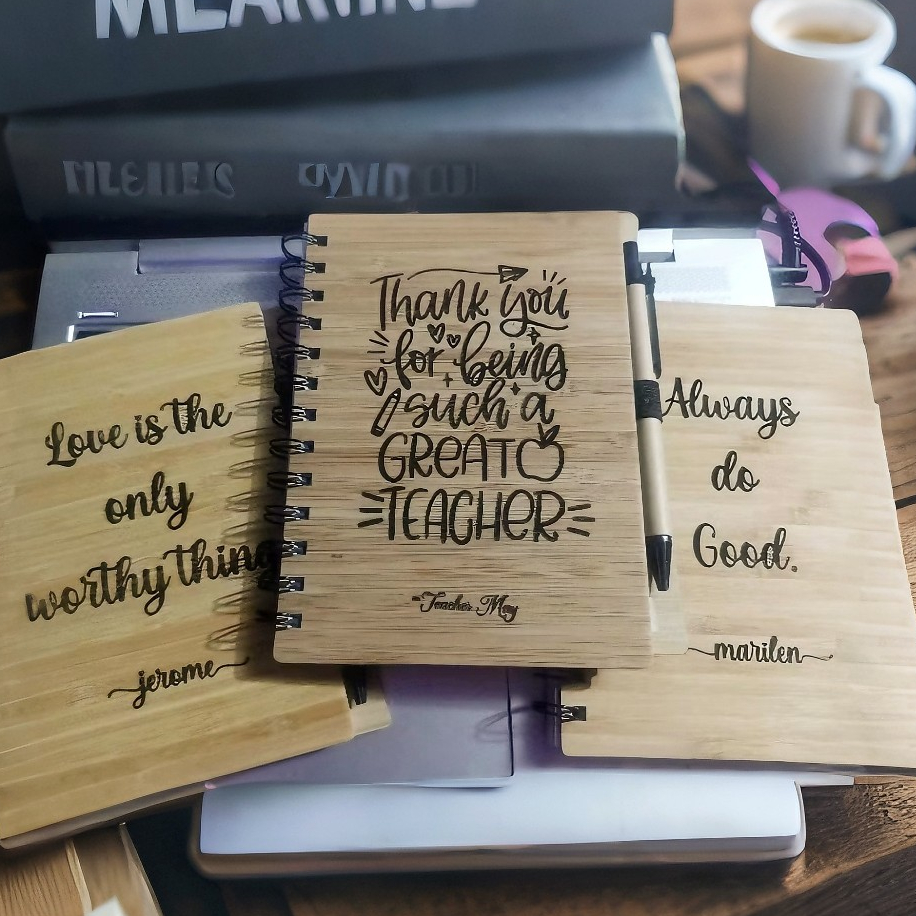 Love is the
only
worthy thing
jerome
Thank you
for being
such a
GREAT
TEACHER
-Teacher May
Always
do
Good.
marilen